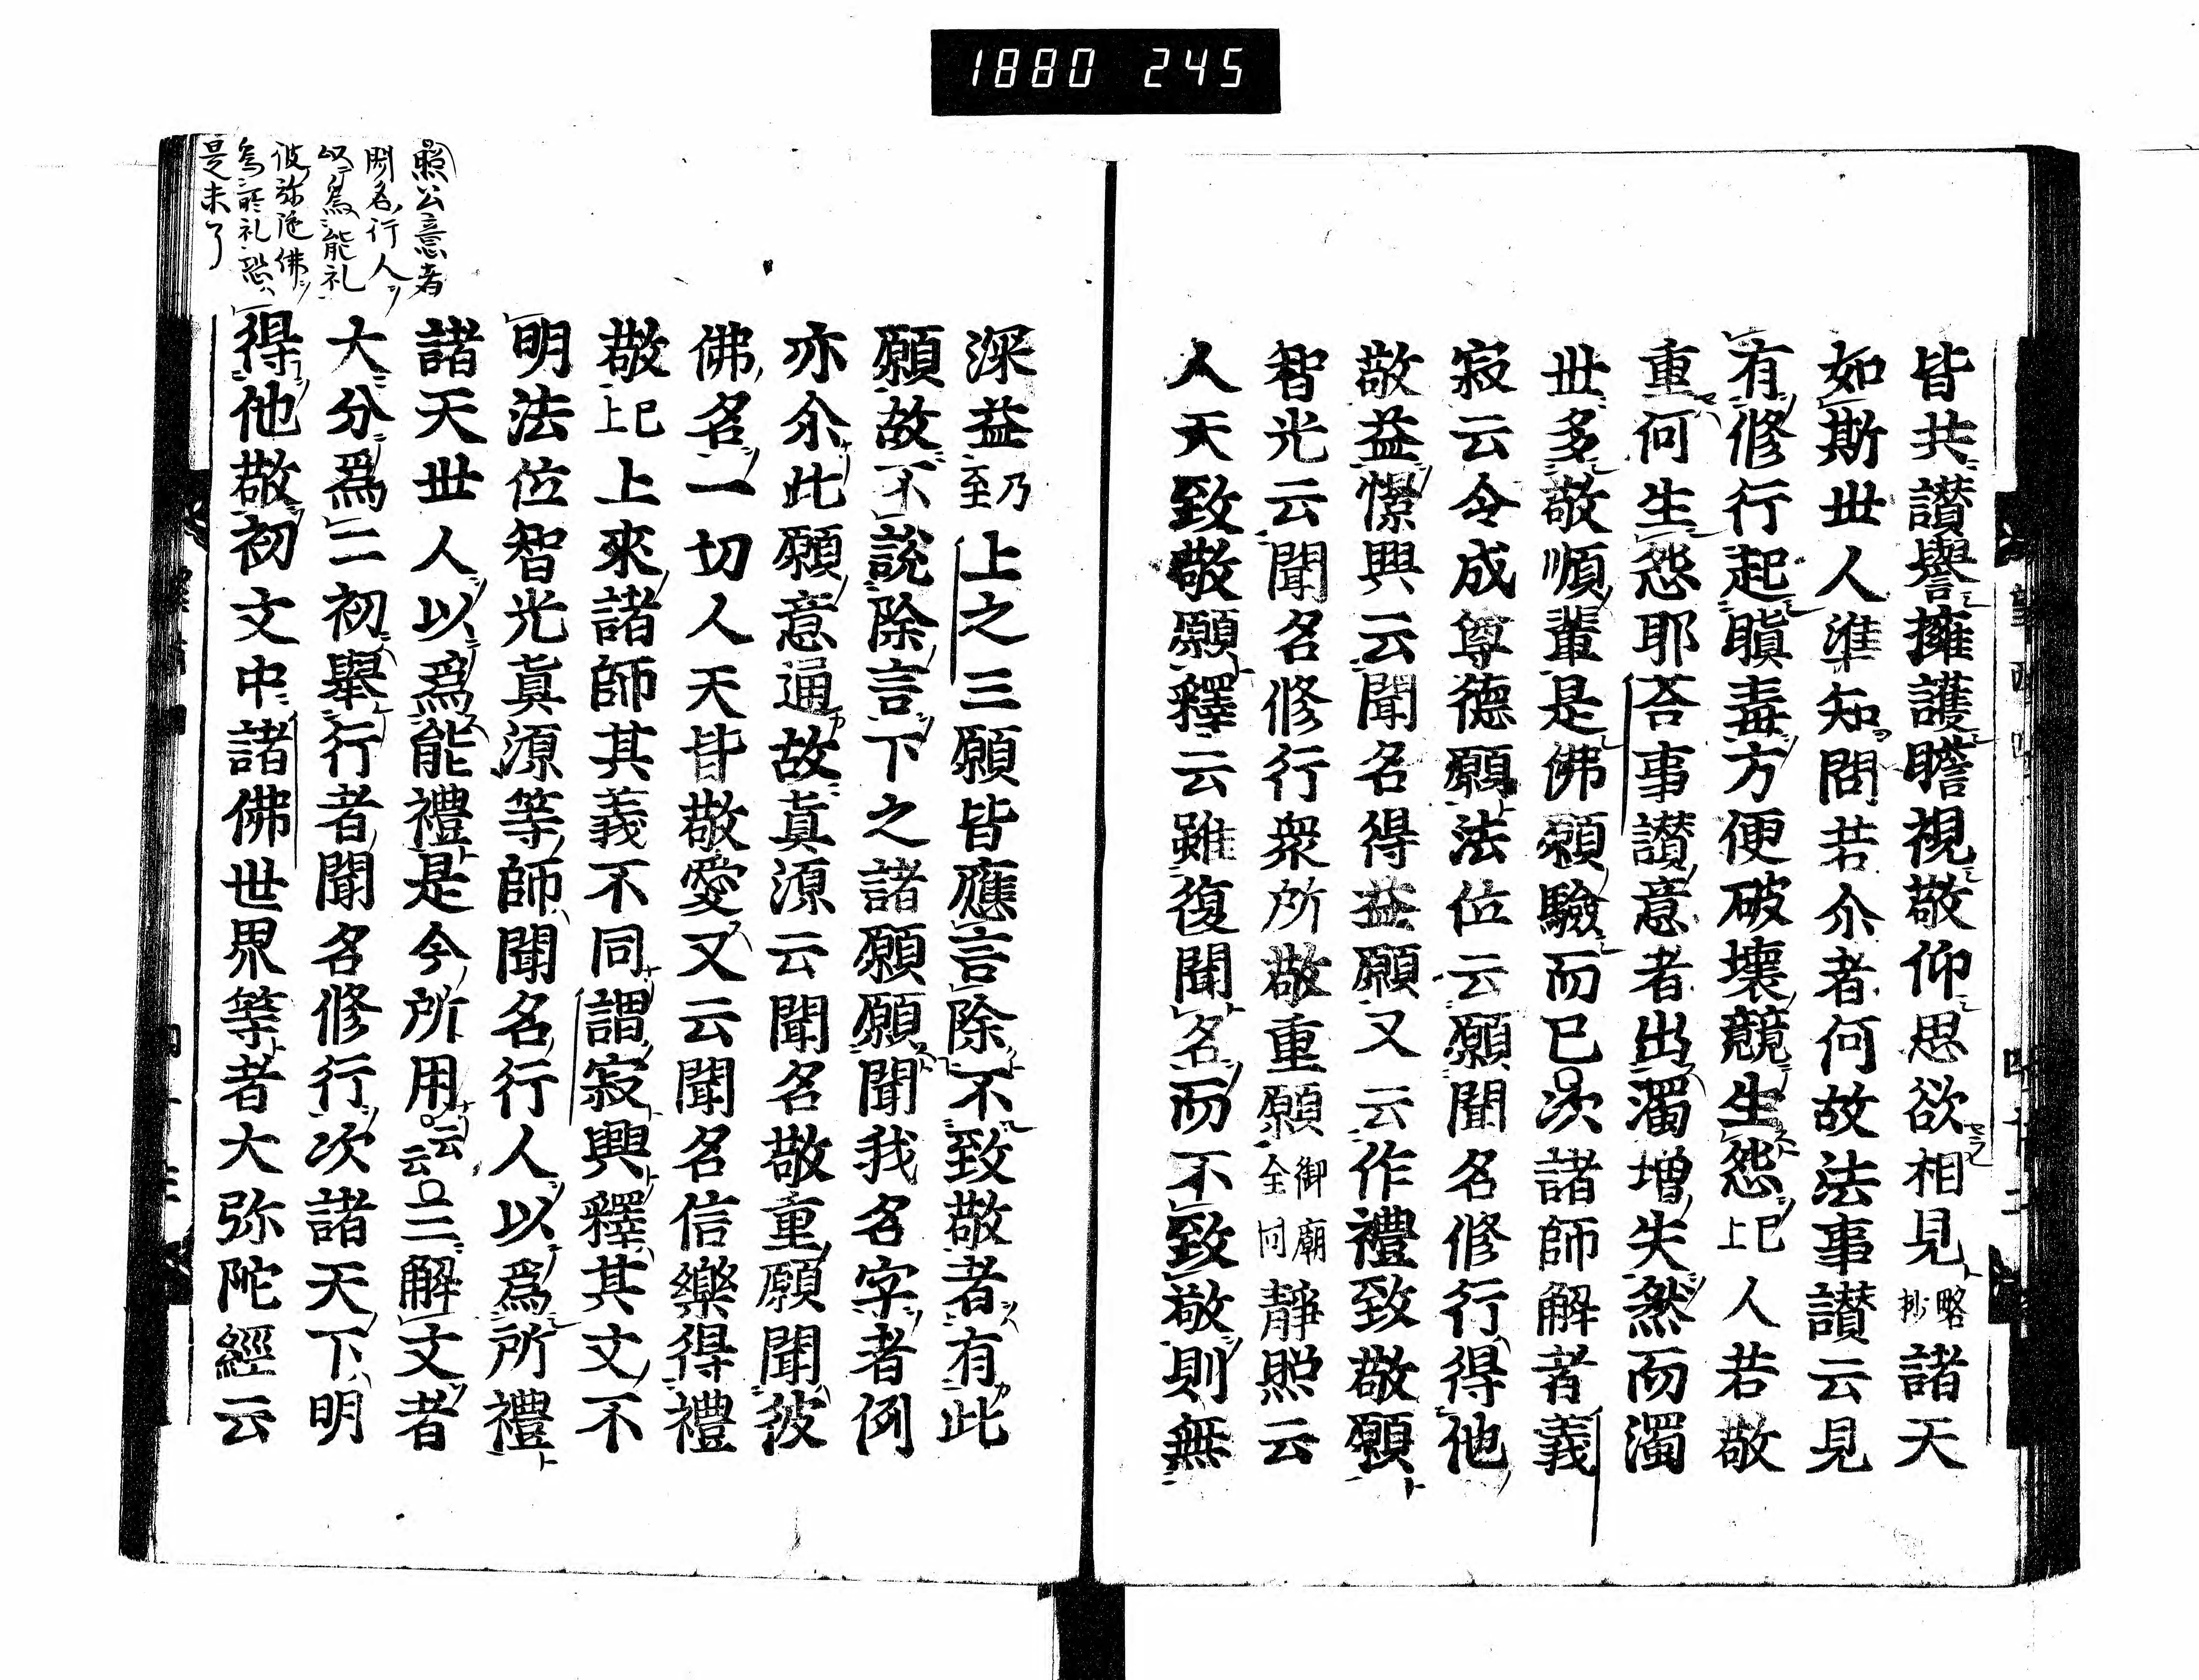 1880 245
皆共讃譽擁護瞻視敬仰思欲相見略抄諸天
如斯世人準知問若尒者何故法事讃云見
有修行起瞋毒方便破壞競生怨已上人若敬
重何生怨耶荅事讃意者出濁増失然而濁
世多敬順輩是佛願驗而已次諸師解者義
寂云令成尊德願法位云願聞名修行得他
敬益憬興云聞名得益願又云作禮致敬願
智光云聞名修行衆所敬重願御廟全同靜照云
人天致敬願釋云雖復聞名而不致敬則無
深益乃至上之三願皆應言除不致敬者有此
願故不說除言下之諸願願聞我名字者例
亦尒此願意通故眞源云聞名敬重願聞彼
佛名一切人天皆敬愛又云聞名信樂得禮
敬已上上來諸師其義不同謂寂興釋其文不
明法位智光眞源等師聞名行人以爲所禮
諸天世人以爲能禮是今所用云云二解文者
大分爲二初舉行者聞名修行次諸天下明
得他敬初文中諸佛世界等者大弥陀經云
照公意者
聞名行人
以爲能礼
彼弥陀佛
爲所礼恐
是未了